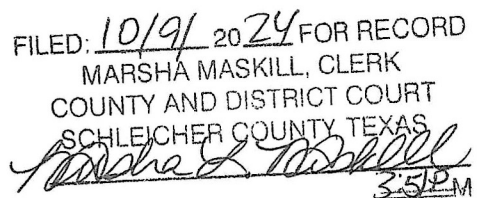 FILED: 10/9/ 2024 FOR RECORD
MARSHA MASKILL, CLERK
COUNTY AND DISTRICT COURT
SCHLEICHER COUNTY, TEXAS
Marsha L. Maskill
3:51PM